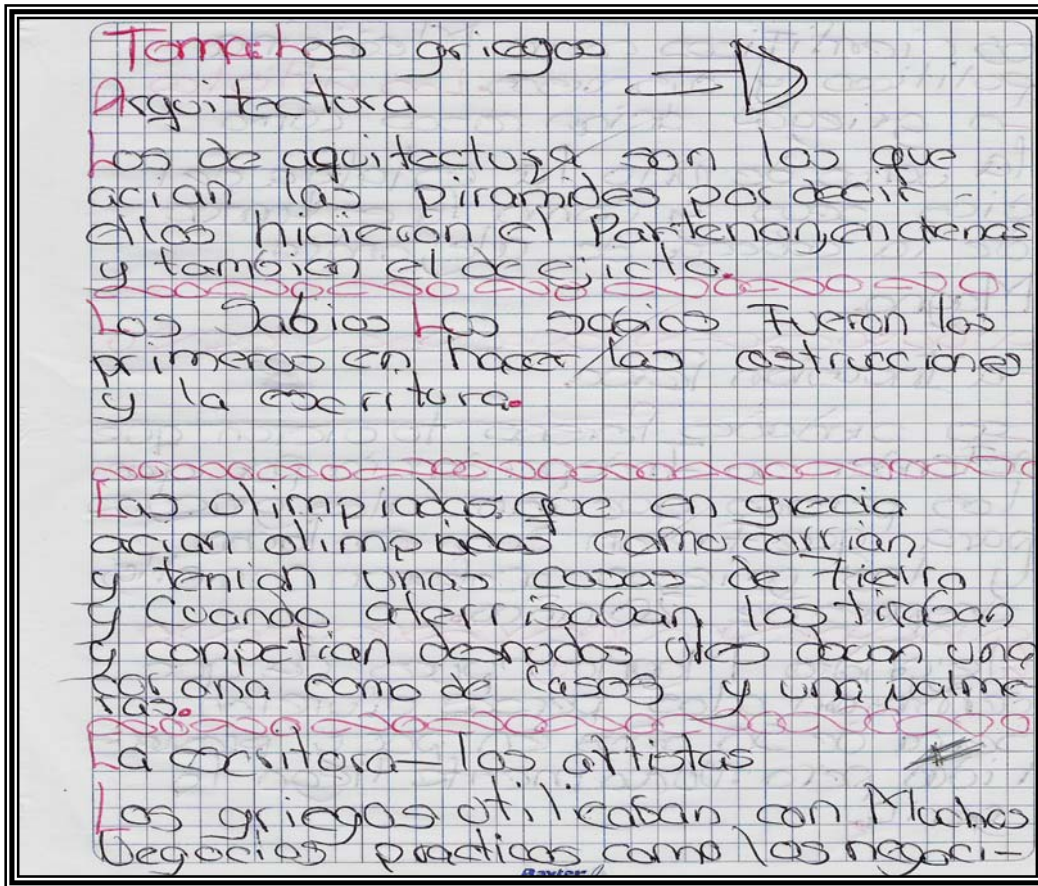 Tema: Los griegos
Arquitectura
Los de aquitectura son los que
acian las piramides por decir
ellos hicieron el Partenon, en atenas
y tambien el de ejicto.
Los Sabios Los sabios Fueron los
primeros en hacer las costrucciones
y la escritura.
Las olimpiadas: que en grecia
acian olimpiadas como corrian
y tenian unas cosas de Fierro
y cuando aterrisaban las tiraban
y conpetian desnudos y les daban una
corona como de y una palme
ras.
La escritora – los artistas
Los griegos utilicaban con Muchos
negocios practicos como los negoci-